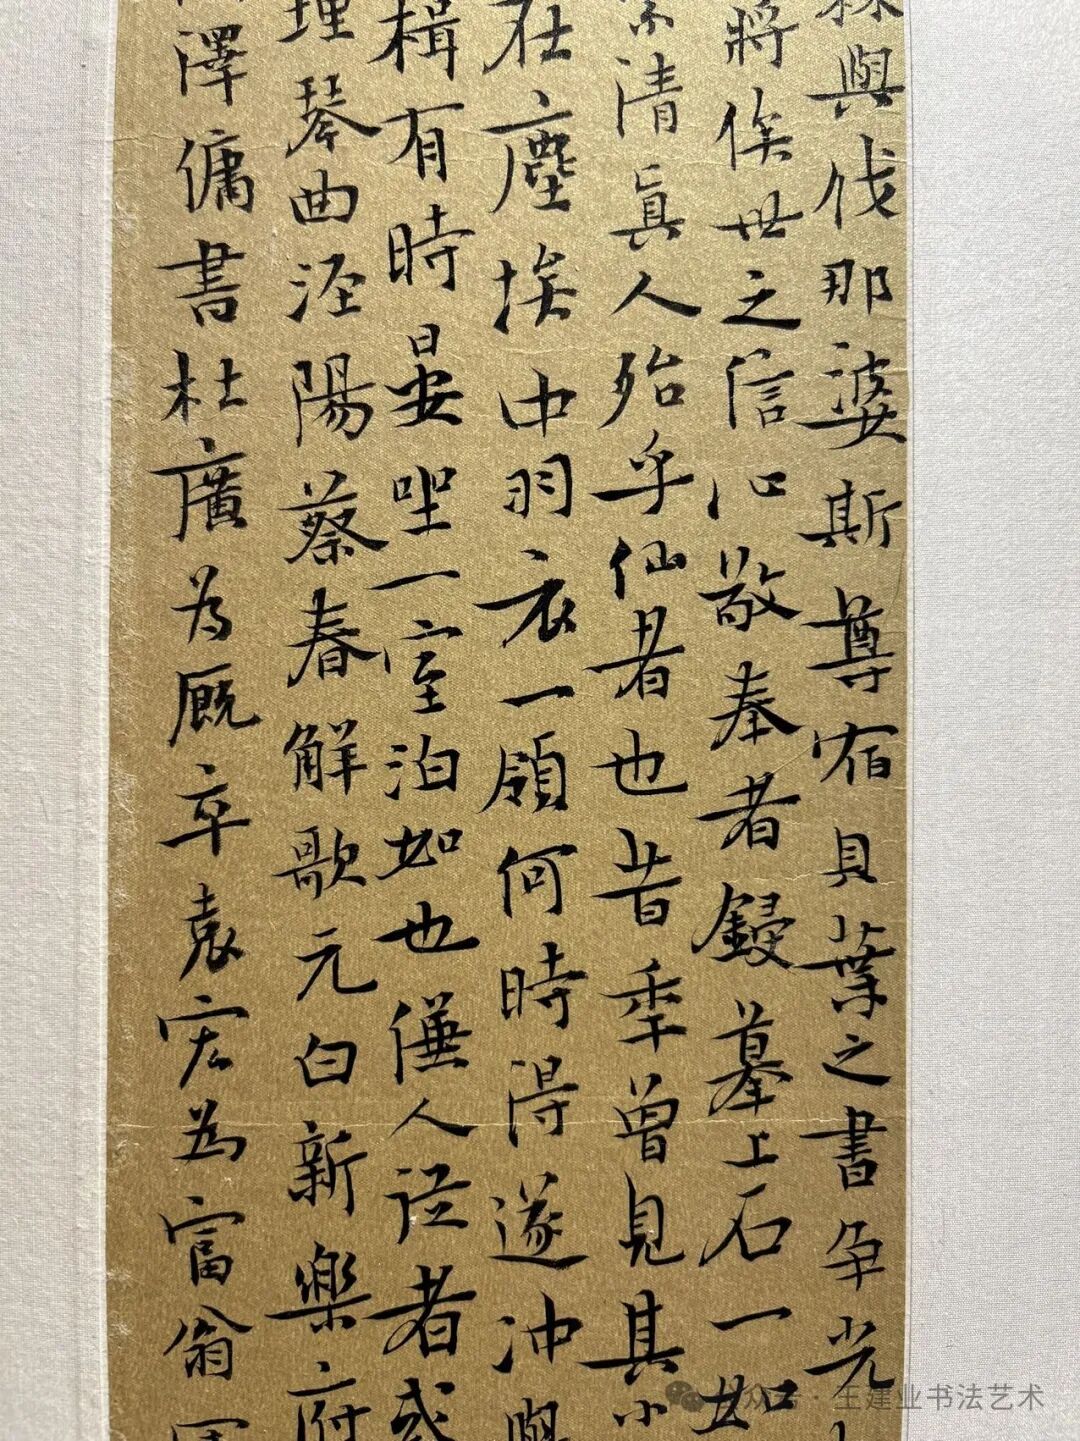 與伐那婆斯尊宿貝葉之書爭光
將俟世之信心敬奉者鋟摹上石一如
清真人殆乎仙者也昔年曾見其小
在塵埃中羽衣一領何時得遂沖與
楫有時晏坐一室泊如也僊人從者或
埋琴曲涇陽蔡春解歌元白新樂府
澤傭書杜廣為厩卒袁宏為富翁
公众号·王建业书法艺术